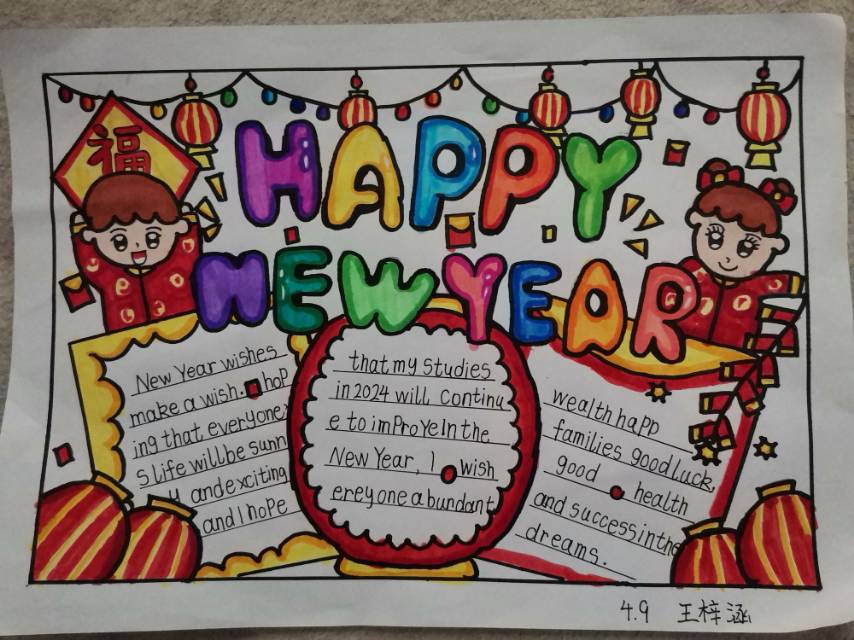 福
HAPPY
NEW YEAR
New Year wishes
make a wish. hop
ing that everyone
s life will be sunn
y and exciting
and I hope
that my studies
in 2024 will continu
e to imProve In the
New Year, I wish
ereyone abundant
wealth happ
families good luck,
good health
and success in the
dreams.
4.9 王梓涵